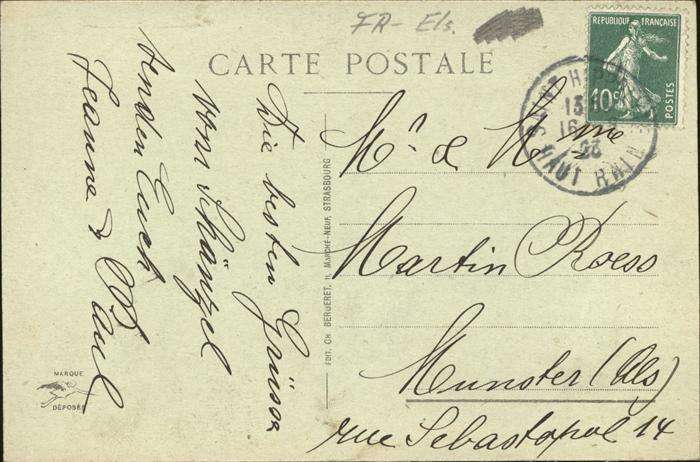 FR- Els.
CARTE POSTALE
REPUBLIQUE FRANÇAISE
10c
POSTES
HAUT RHIN
Die besten Grüsse
vom Schänzel
senden Euch
Jeanne & Paul
EDIT. CH. BERGERET, MARCHÉ-NEUF, STRASBOURG
Mr & Mme
Martin Roess
Munster (Als)
rue Sebastopol 14
MARQUE
DÉPOSÉE